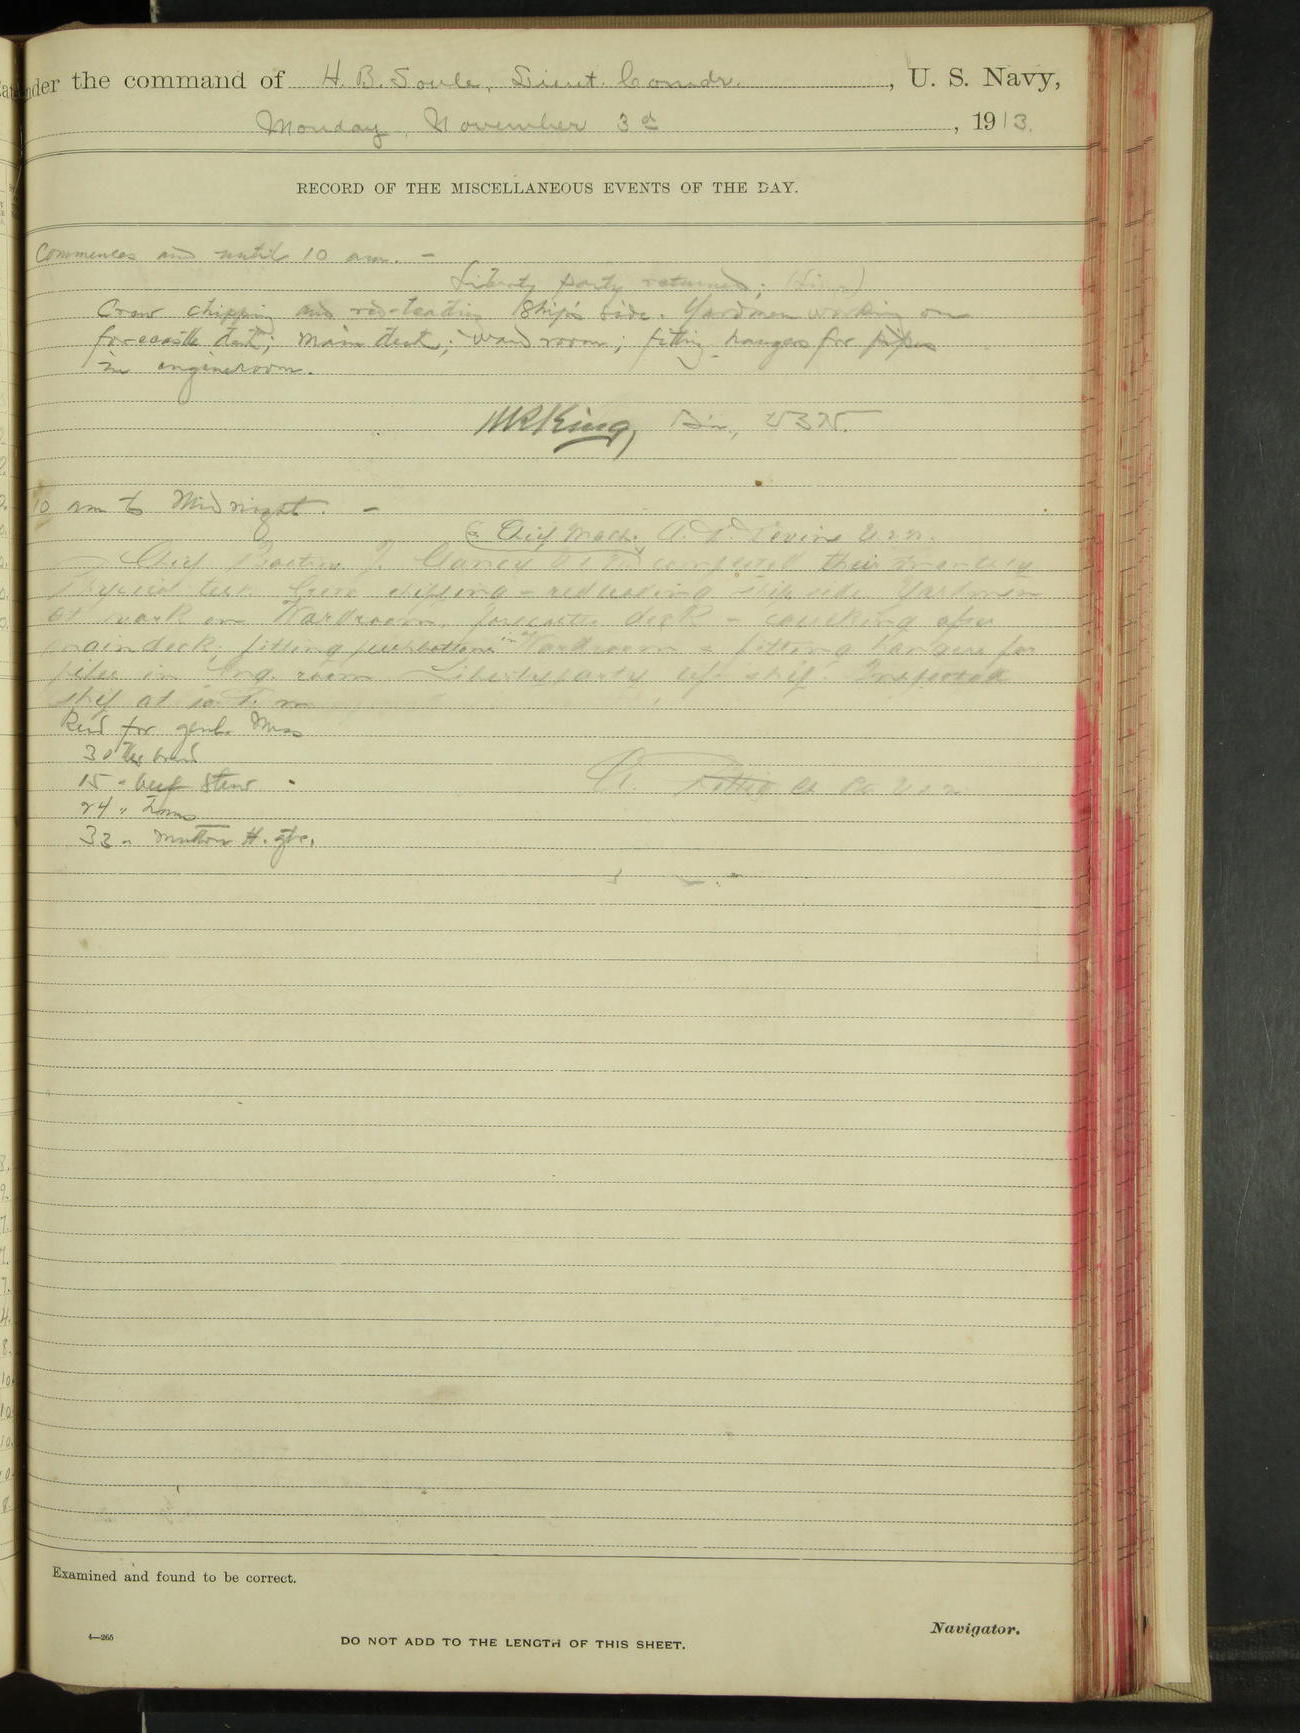 under the command of H. B. Soule, Lieut. Comdr., U. S. Navy,
Monday, November 3d, 1913.
RECORD OF THE MISCELLANEOUS EVENTS OF THE DAY.
Commences and until 10 am. -
Liberty party returned;
Crew chipping and red-leading Ship's side. Yardmen working on
forecastle deck; main deck; ward room; fitting hangers for pipes
in engineroom.
MRKing, USN.
10 am to Midnight. -
& Chief Mach. A. D. Devine U.S.N.
Chief Boatsn J. Clancy U.S.N. completed their monthly
physical test. Crew chipping - redleading ship side. Yardmen
at work on Wardroom, forecastle deck - caulking after
main deck, fitting pushbottons in Wardroom & fitting hangers for
pipes in Eng. room Liberty party left ship. Inspected
ship at 10 P. m
Recd for genl. Mess
30 lbs bread
15 " beef Stew
24 "
33 " mutton H. qtr.
U.S.N.
Examined and found to be correct.
4—265
DO NOT ADD TO THE LENGTH OF THIS SHEET.
Navigator.